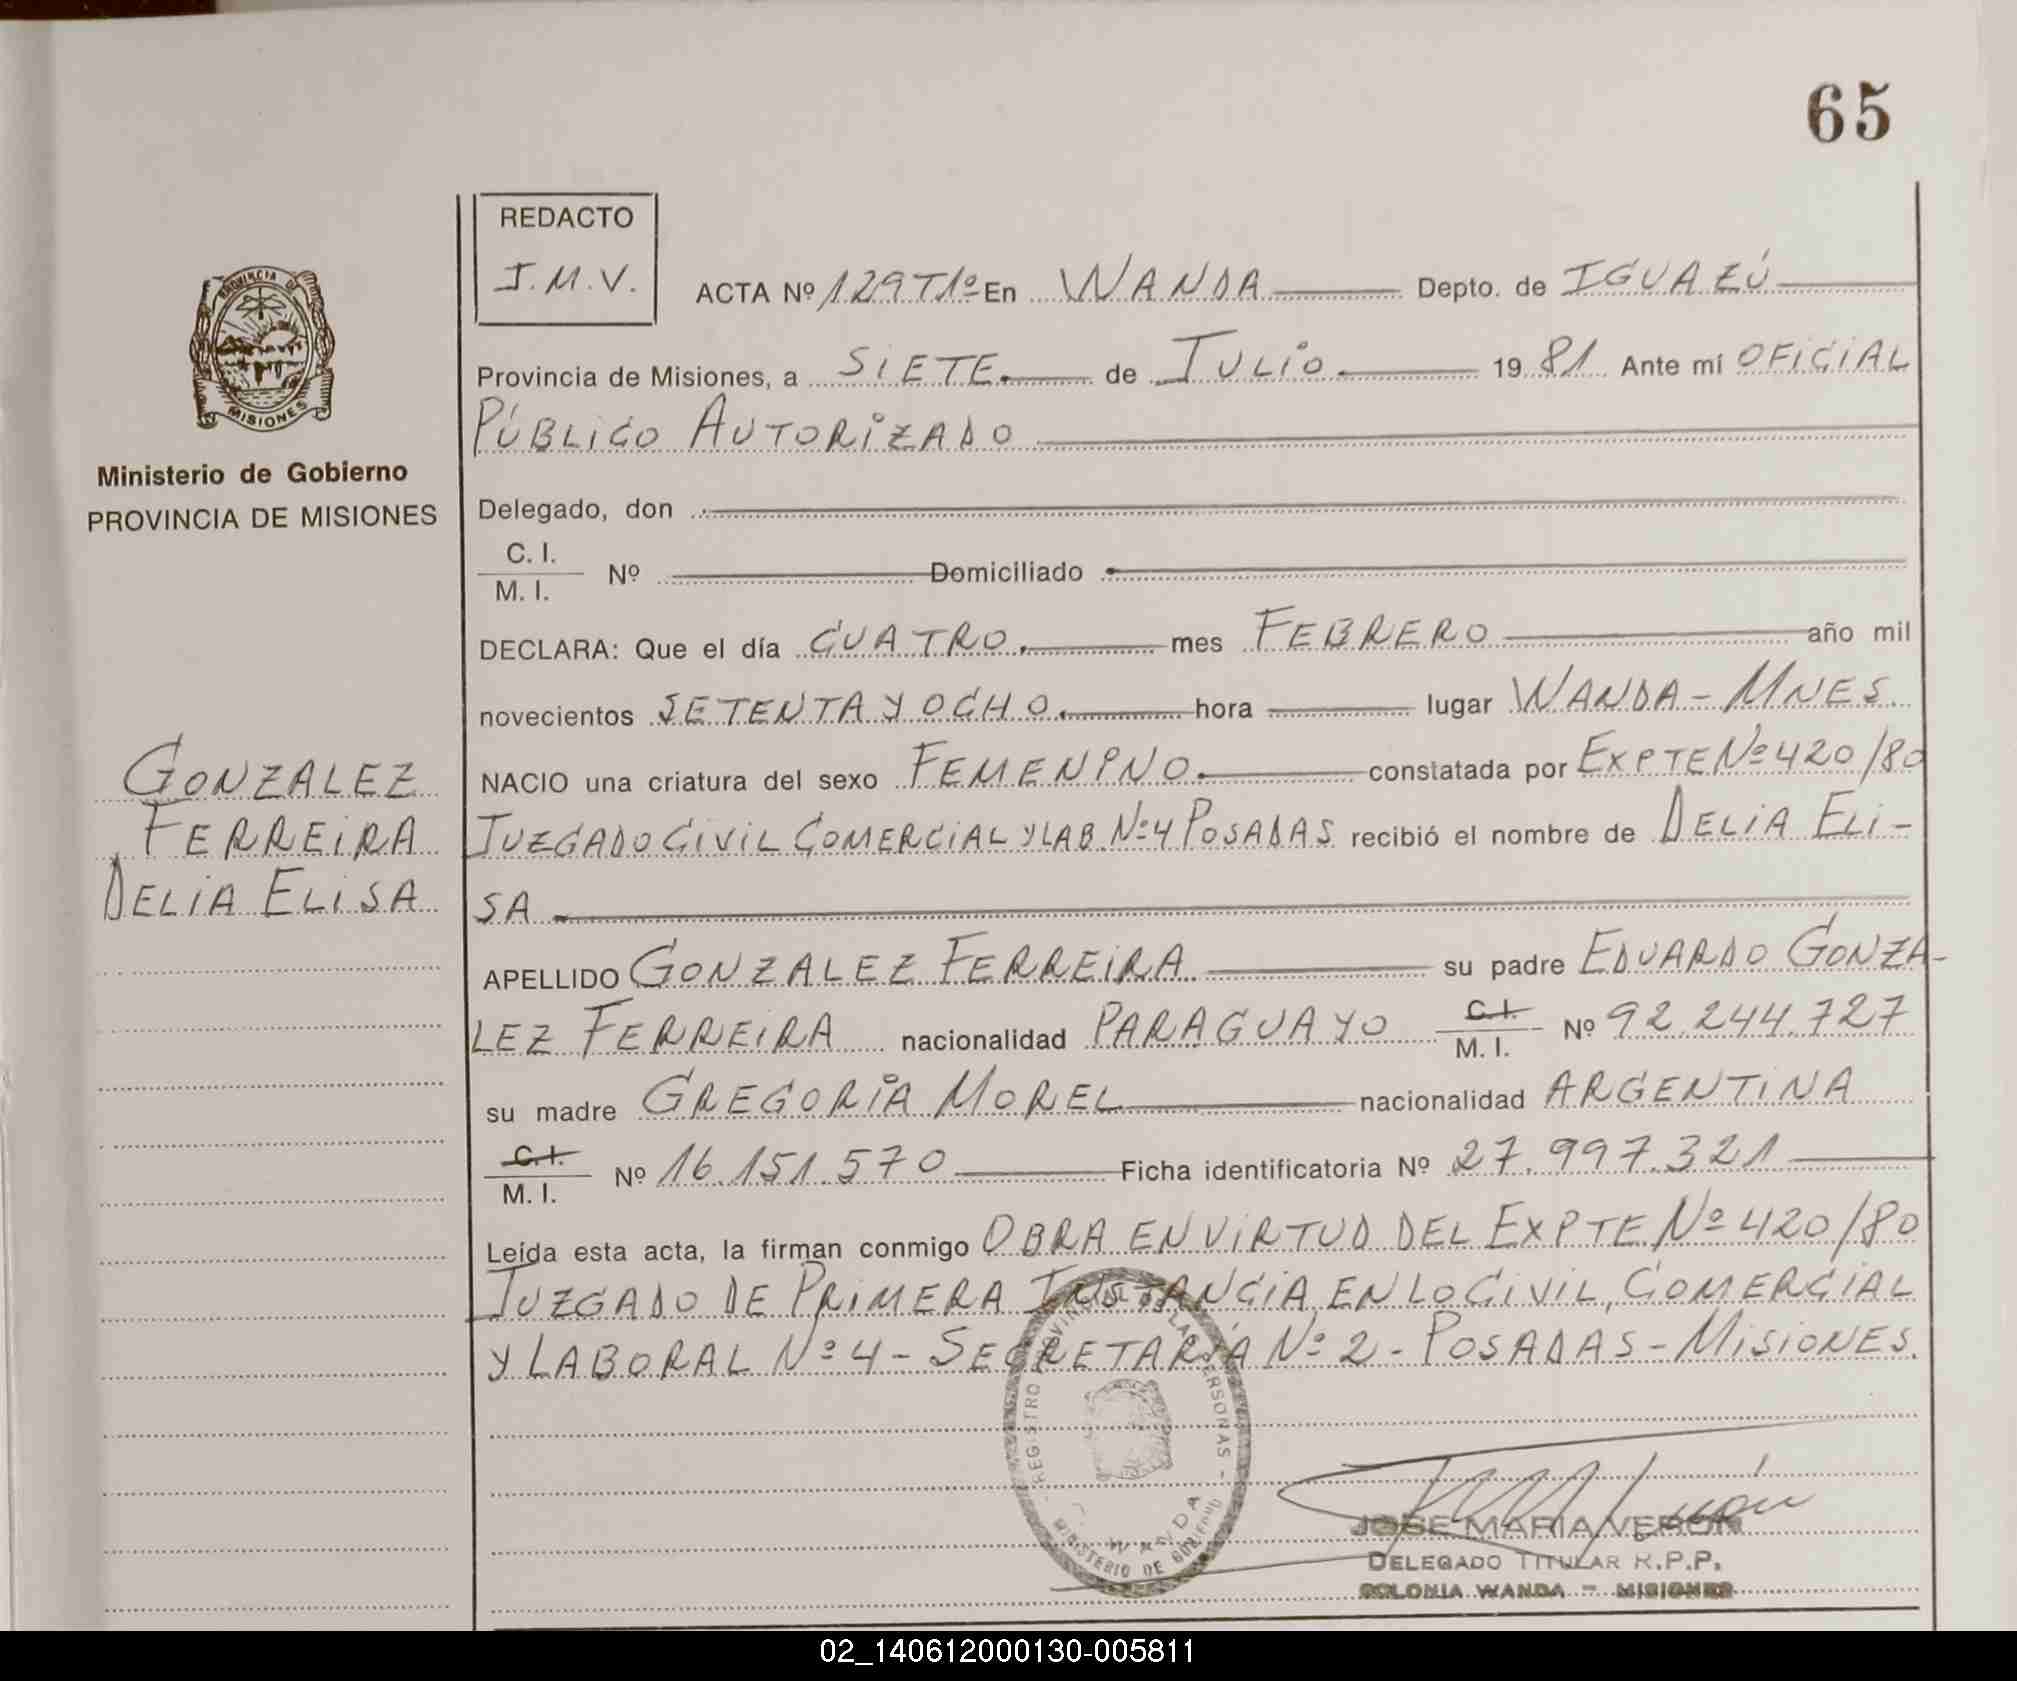 65
REDACTO
J.M.V.
ACTA Nº 129T1º En WANDA Depto. de IGUAZÚ
Provincia de Misiones, a SIETE. de JULIO. 1981 Ante mí OFICIAL
PÚBLICO AUTORIZADO
Delegado, don
C. I.
M. I. Nº Domiciliado
DECLARA: Que el día CUATRO. mes FEBRERO año mil
novecientos SETENTA Y OCHO. hora lugar WANDA - MNES.
NACIO una criatura del sexo FEMENINO. constatada por EXPTE Nº 420/80
JUZGADO CIVIL COMERCIAL Y LAB. Nº 4 POSADAS recibió el nombre de DELIA ELI-
SA
APELLIDO GONZALEZ FERREIRA su padre EDUARDO GONZA-
LEZ FERREIRA nacionalidad PARAGUAYO C. I. M. I. Nº 92.244.727
su madre GREGORIA MOREL nacionalidad ARGENTINA
C. I.
M. I. Nº 16.151.570 Ficha identificatoria Nº 27.997.321
Leída esta acta, la firman conmigo OBRA EN VIRTUD DEL EXPTE. Nº 420/80
JUZGADO DE PRIMERA INSTANCIA EN LO CIVIL, COMERCIAL
Y LABORAL Nº 4 - SECRETARÍA Nº 2 - POSADAS - MISIONES.
PROVINCIA DE
MISIONES
Ministerio de Gobierno
PROVINCIA DE MISIONES
GONZALEZ
FERREIRA
DELIA ELISA
REGISTRO PROVINCIAL DE LAS PERSONAS -
WANDA
MINISTERIO DE GOBIERNO
JOSE MARIA VERON
DELEGADO TITULAR R.P.P.
COLONIA WANDA - MISIONES
02_140612000130-005811